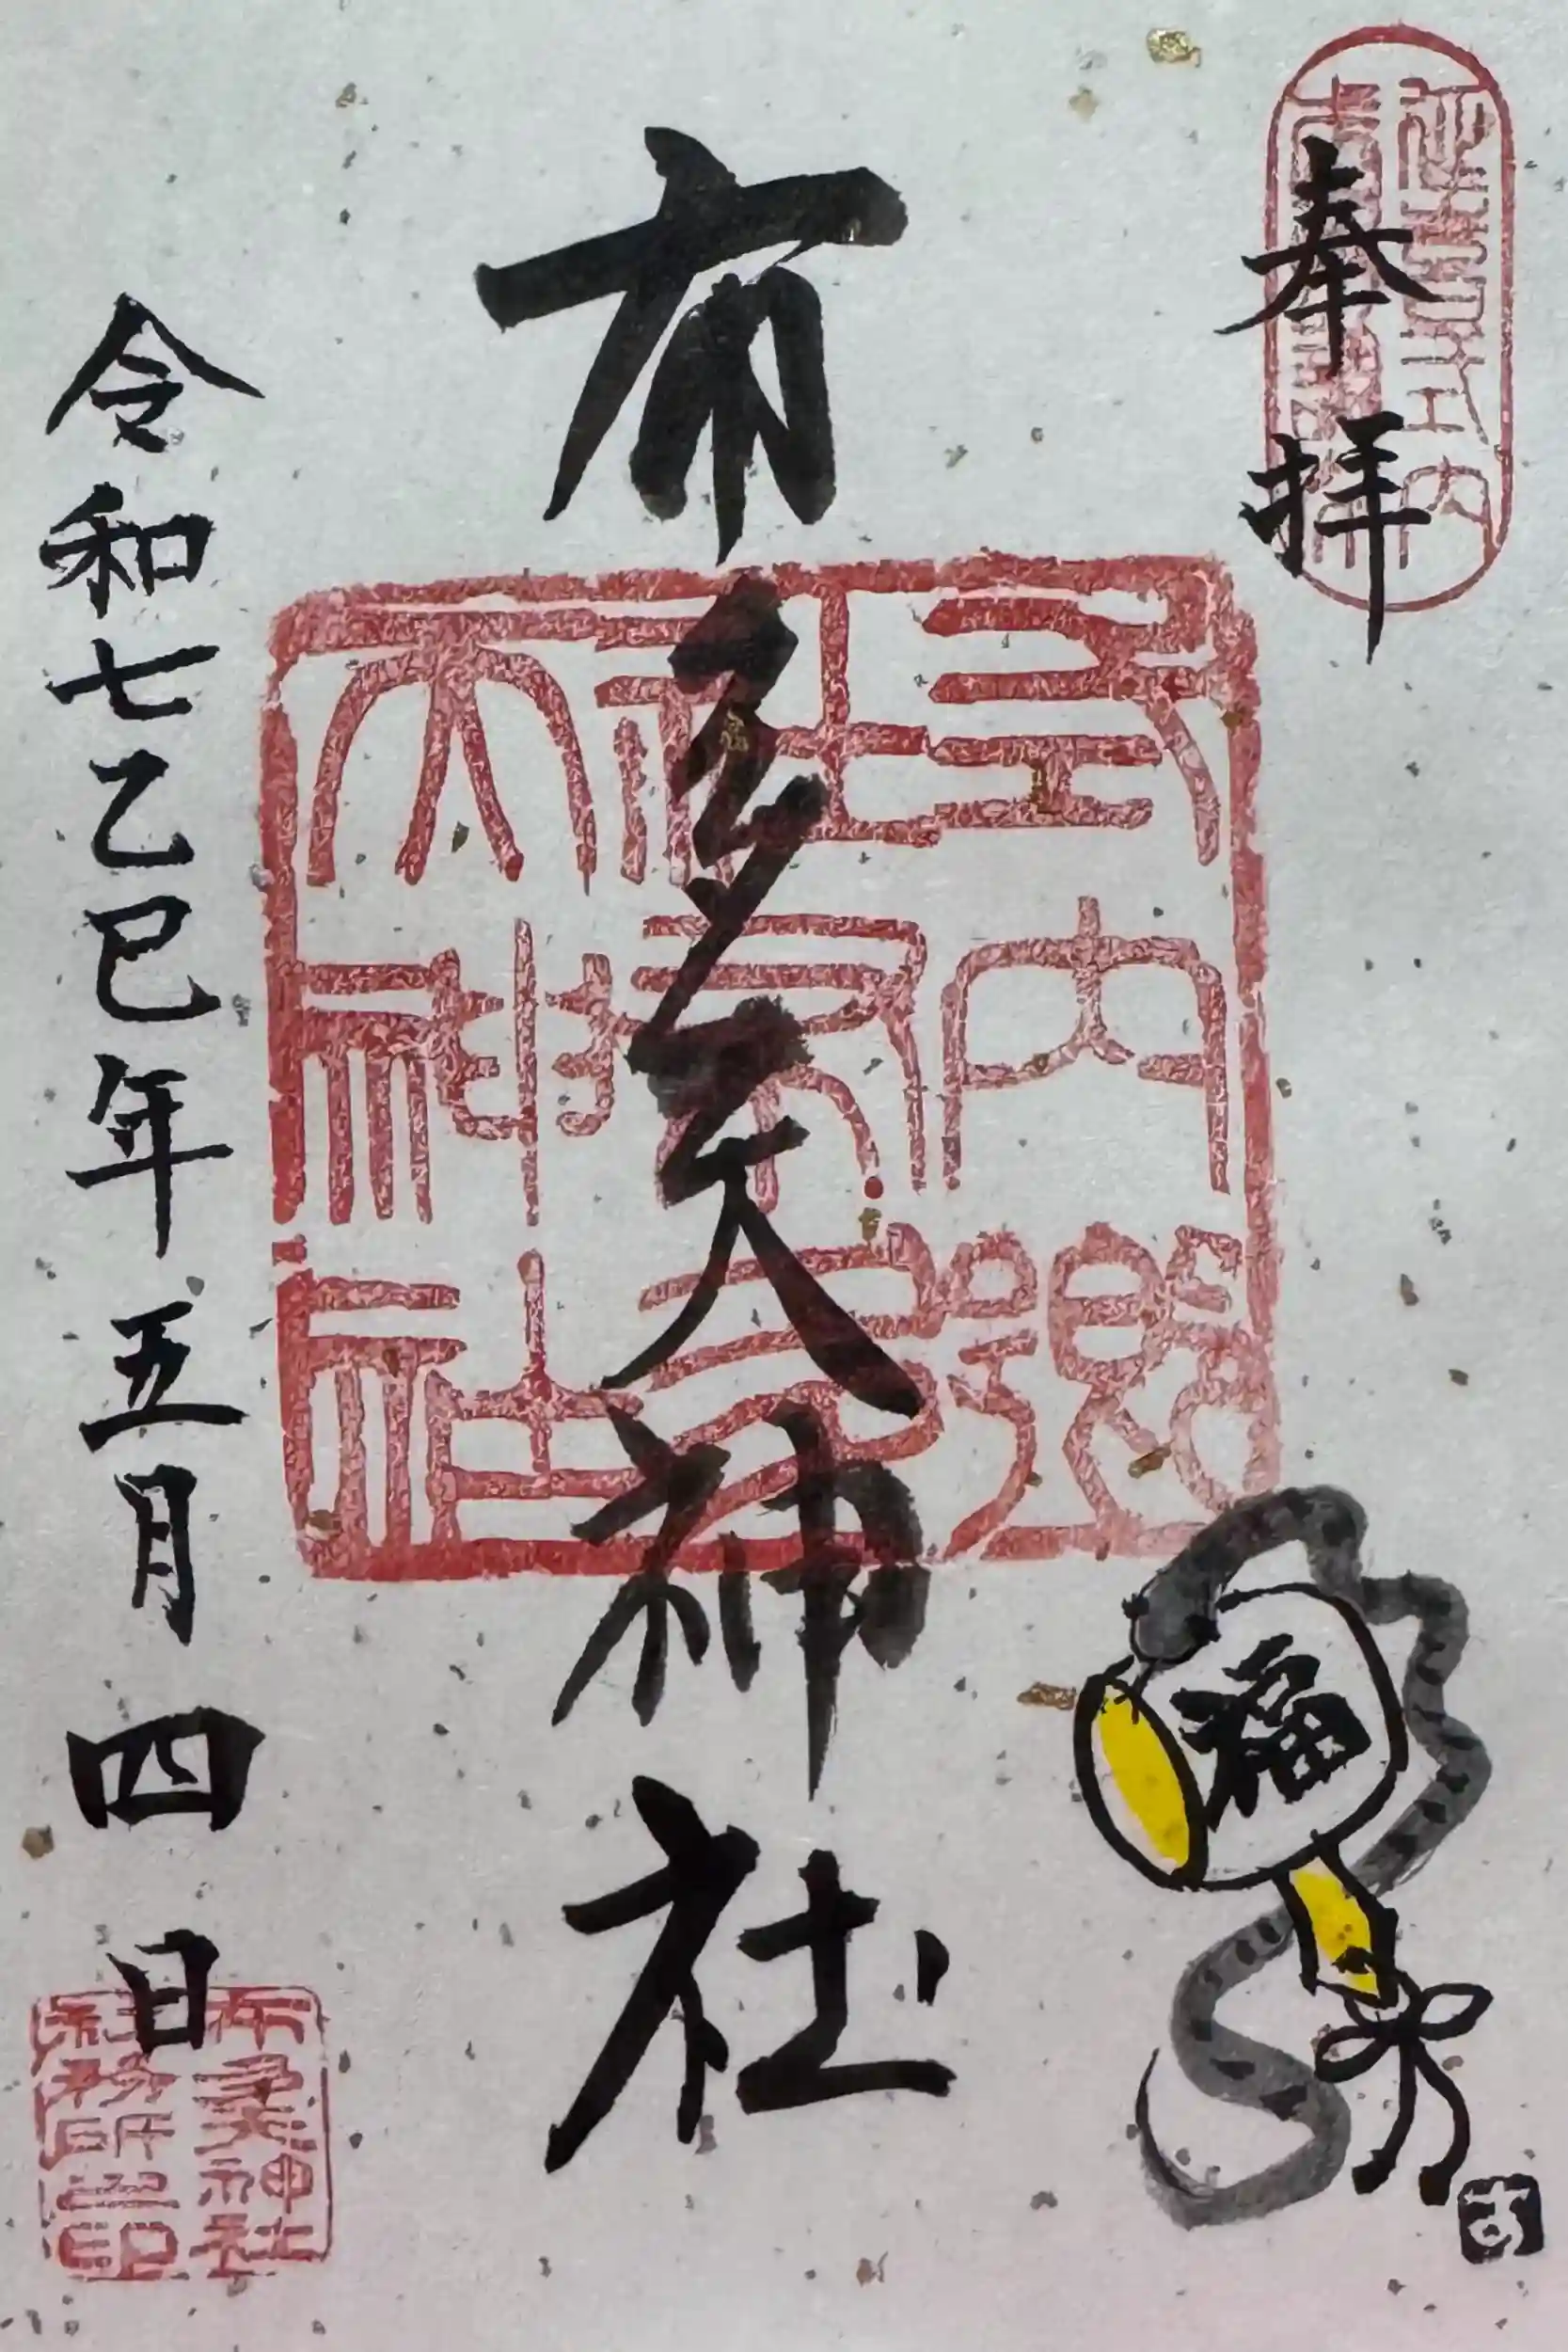 延喜式内
奉拝
式内郷
社布多
天神社
布多天神社
福
令和七乙巳年五月四日
布多天神社
社務所之印